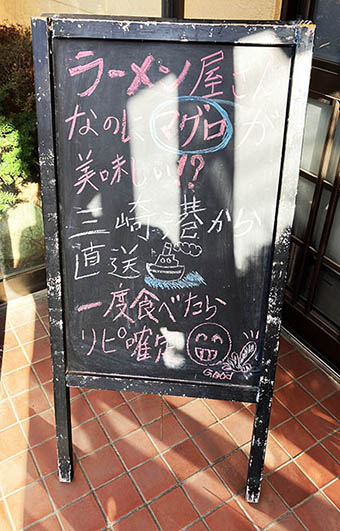 ラーメン屋さん
なのにマグロが
美味しい!?
三崎港から
直送
一度食べたら
リピ確定